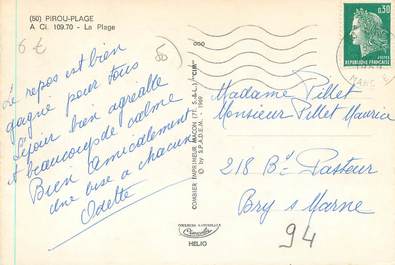 (50) PIROU-PLAGE
A Ci. 109.70 - La Plage
6 €
50
Le repos est bien
gagné pour tous
Séjour bien agréable
et beaucoup de calme
Bien amicalement
une bise a chacun
Odette
COMBIER IMPRIMEUR MACON (77, S.-A.-L.) "CIM"
© by S.P.A.D.E.M. - 1969
COMBIER
HELIO
0,30
Madame Pillet
Monsieur Pillet Maurice
218 Bd Pasteur
Bry s Marne
94